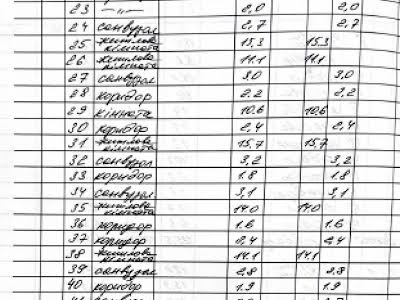 23 —"— 2,0 2,0
24 санвузол 2,7 2,7
25 житлова кімната 15,3 15.3
26 житлова кімната 11.1 11.1
27 санвузол 3,0 3,0
28 коридор 2.2 2,2
29 кімната 10.6 10.6
30 коридор 2,4 2,4
31 житлова кімната 15.7 15.7
32 санвузол 3,2 3,2
33 коридор 1.8 1.8
34 санвузол 3,1 3,1
35 житлова кімната 14.0 14.0
36 коридор 1.6 1.6
37 коридор 2,4 2.4
38 житлова кімната 14.1 14.1
39 санвузол 2.8 2.8
40 коридор 1.9 1.9